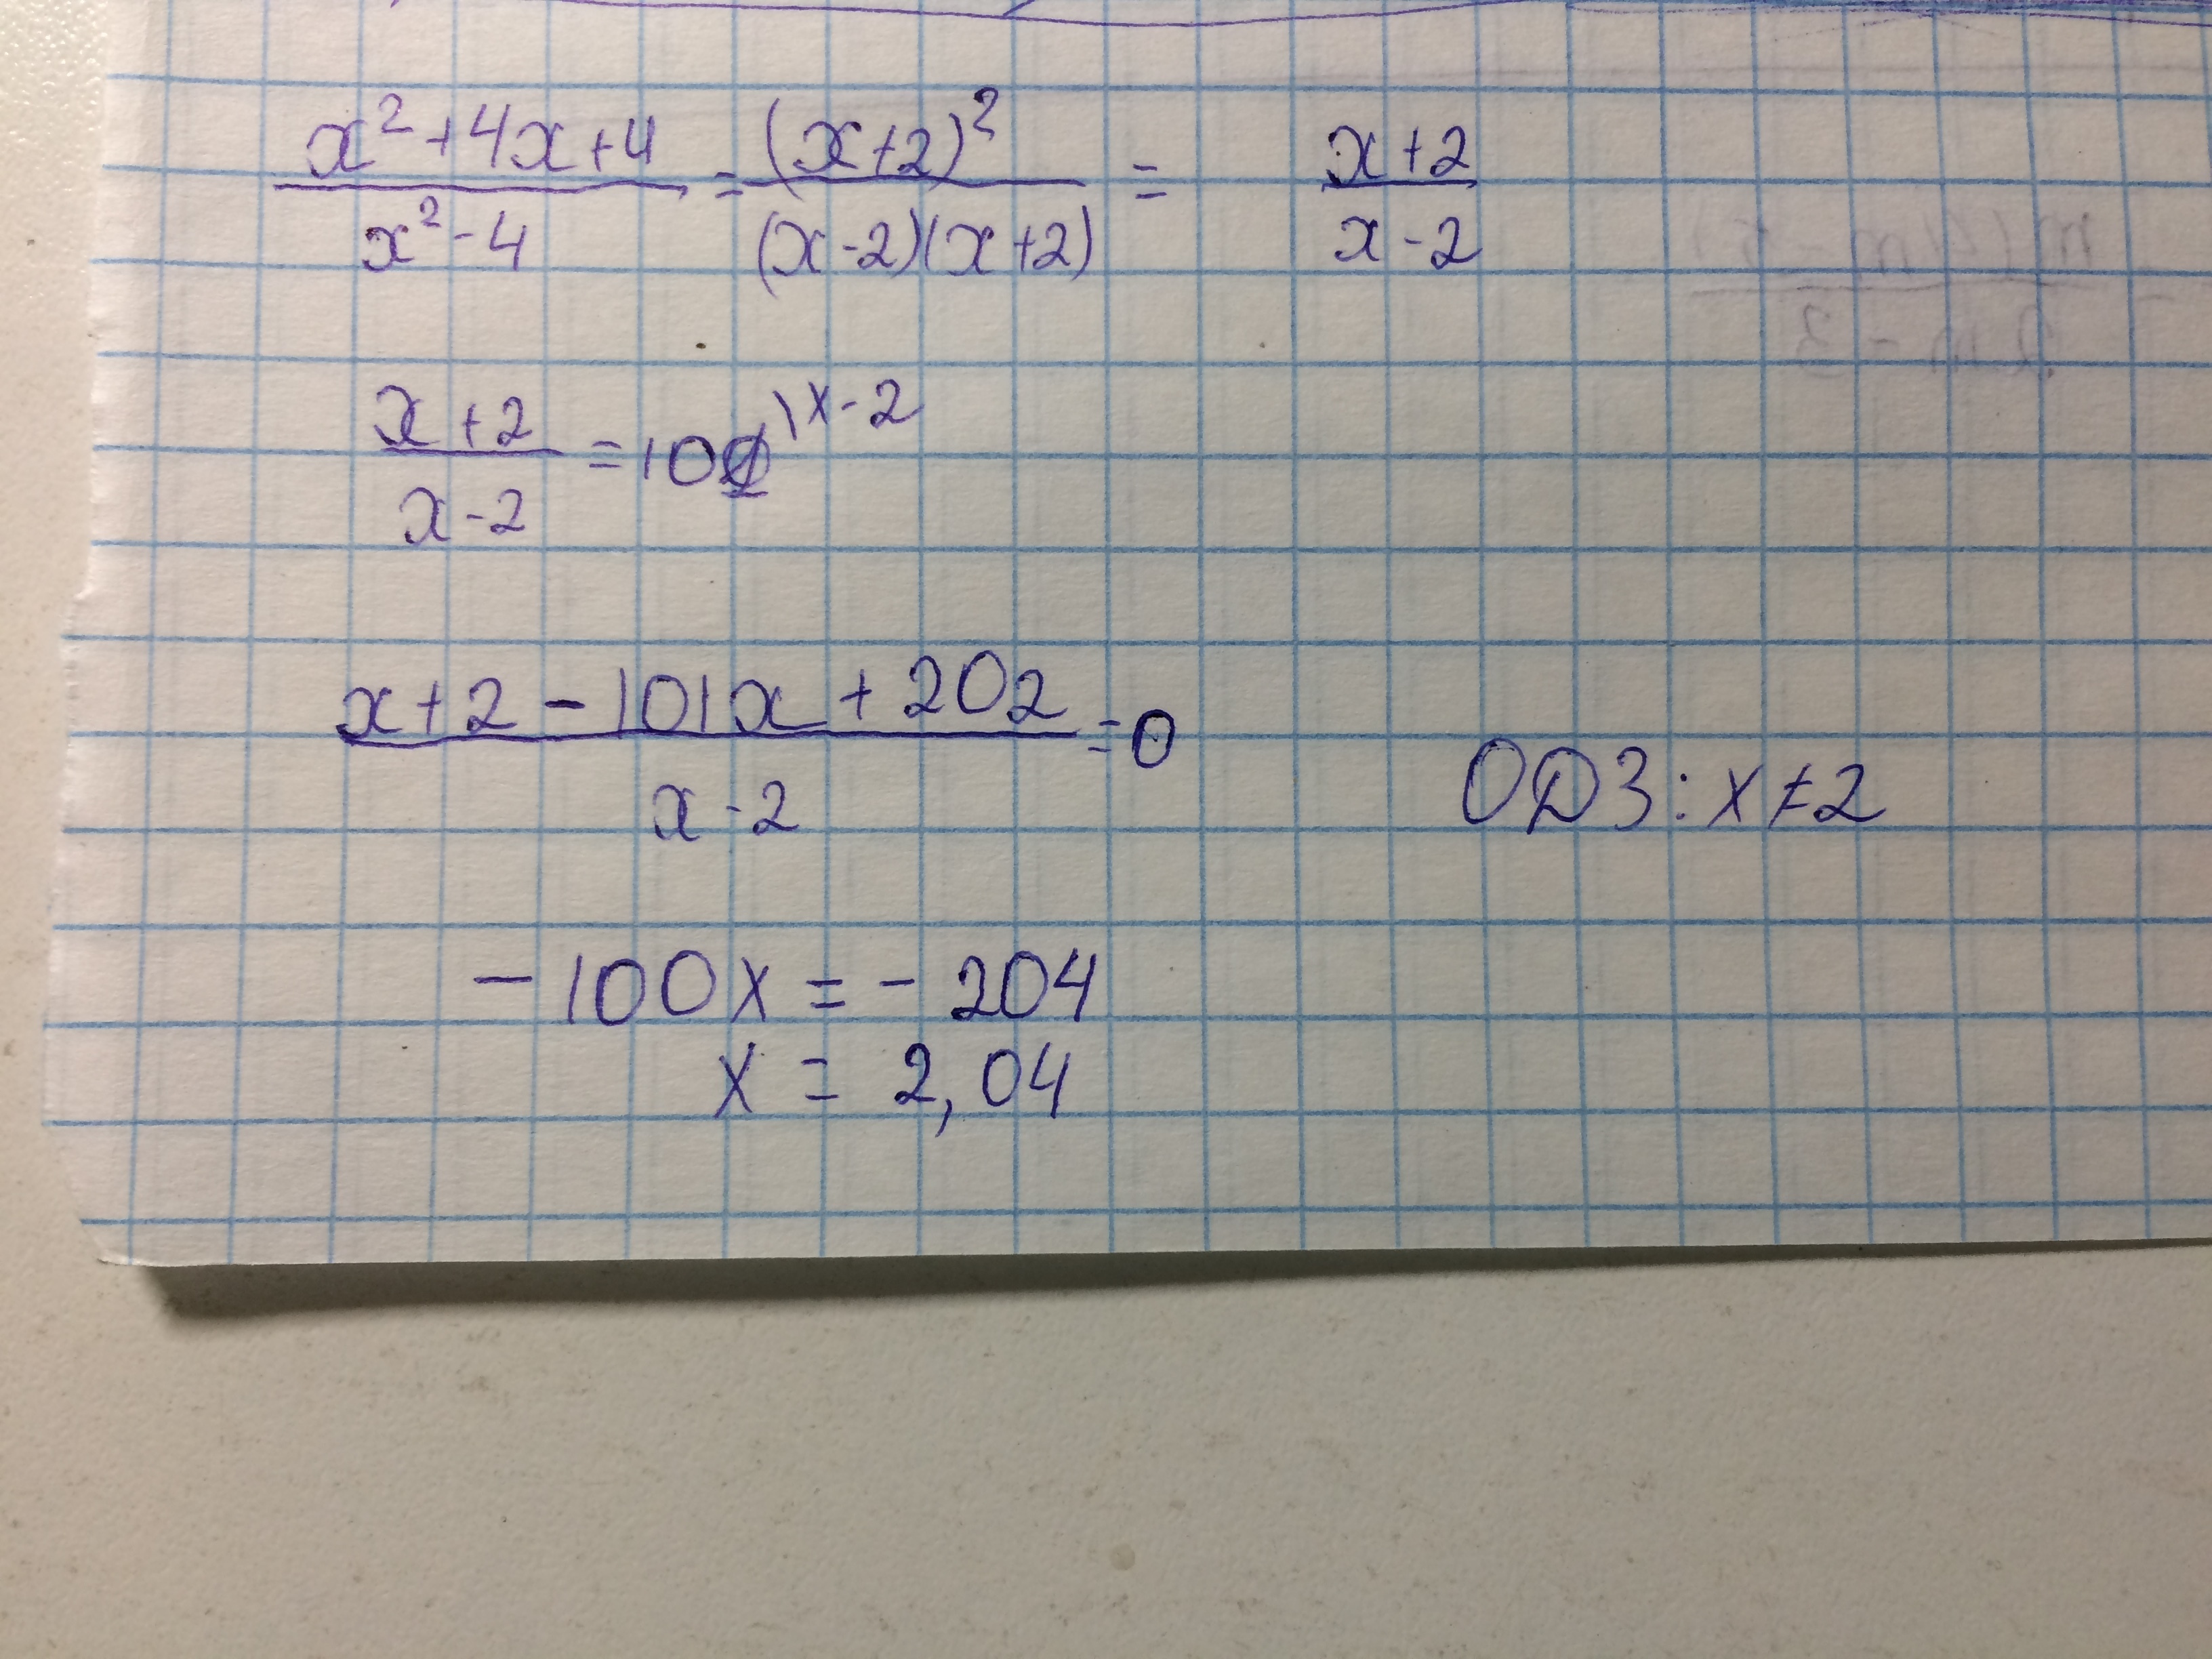 x²+4x+4/x²-4 = (x+2)²/(x-2)(x+2) = x+2/x-2
x+2/x-2 = 101 \x-2
x+2-101x+202/x-2 =0
ОДЗ: x≠2
-100x = -204
x = 2,04